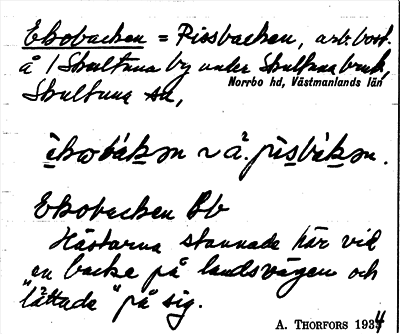 Ekobacken = Pissbacken, arb.bost.
å 1 Skultuna by under Skultuna bruk,
Norrbo hd, Västmanlands län
Skultuna sn,
Ekobacken Bb
Hästarna stannade här vid
en backe på landsvägen och
"lättade" på sig.
A. THORFORS 1934